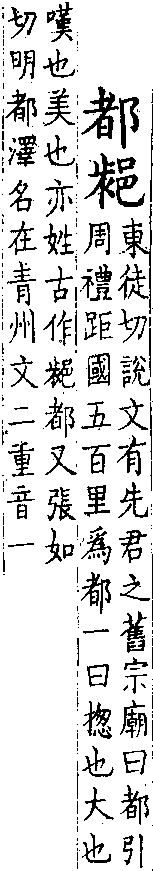 都
東徒切說文有先君之舊宗廟曰都引
周禮距國五百里爲都一曰揔也大也
嘆也美也亦姓古作都又張如
切明都澤名在青州文二重音一